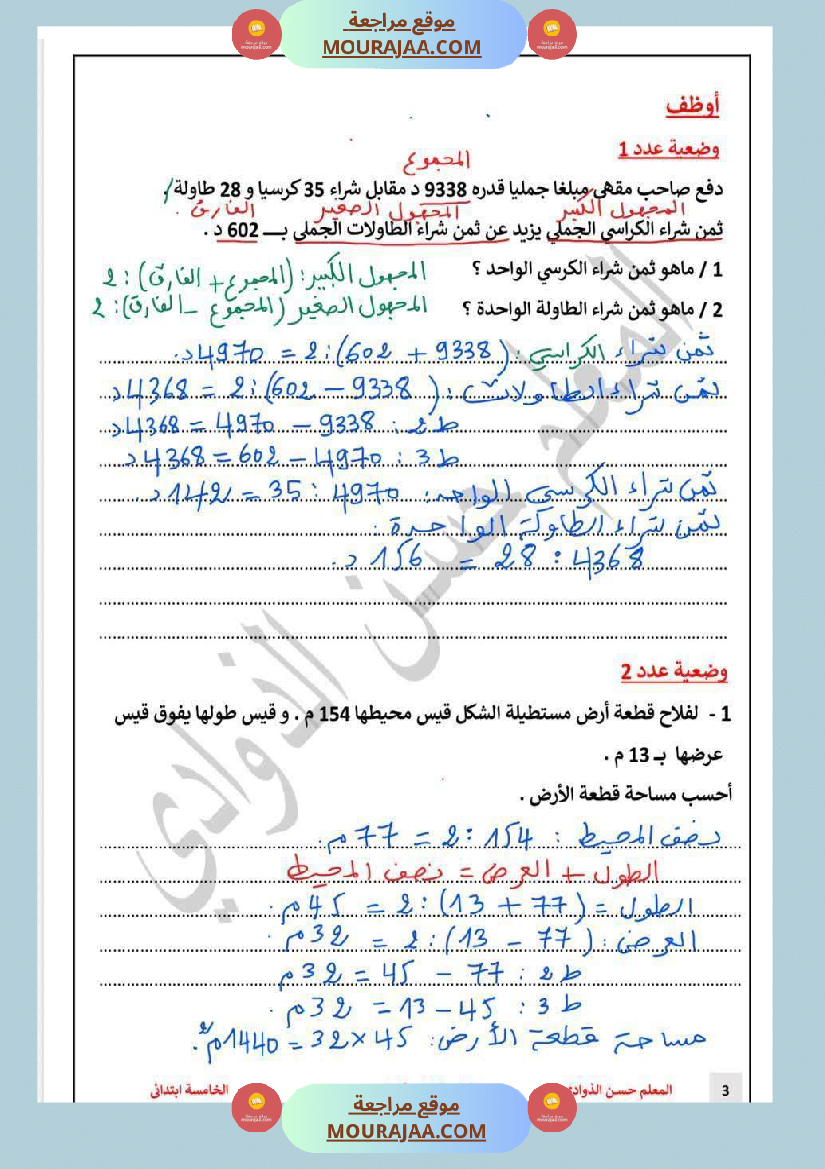 موقع مراجعة
MOURAJAA.COM
أوظف
وضعية عدد 1
المجموع
دفع صاحب مقهى مبلغا جمليا قدره 9338 د مقابل شراء 35 كرسيا و 28 طاولة .
المجهول الكبير المجهول الصغير الفارق .
ثمن شراء الكراسي الجملي يزيد عن ثمن شراء الطاولات الجملي بــــ 602 د .
1 / ماهو ثمن شراء الكرسي الواحد ؟
المجهول الكبير : (المجموع + الفارق) : 2
2 / ماهو ثمن شراء الطاولة الواحدة ؟
المجهول الصغير (المجموع – الفارق) : 2
ثمن شراء الكراسي : (9338 + 602) : 2 = 4970 د.
ثمن شراء الطاولات : (9338 – 602) : 2 = 4368 د
ط 2 : 9338 – 4970 = 4368 د
ط 3 : 4970 – 602 = 4368 د
ثمن شراء الكرسي الواحد : 4970 : 35 = 142 د.
ثمن شراء الطاولة الواحدة :
4368 : 28 = 156 د.
وضعية عدد 2
1 - لفلاح قطعة أرض مستطيلة الشكل قيس محيطها 154 م . و قيس طولها يفوق قيس
عرضها بـ 13 م .
أحسب مساحة قطعة الأرض .
نصف المحيط : 154 : 2 = 77 م.
الطول + العرض = نصف المحيط
الطول = (77 + 13) : 2 = 45 م.
العرض : (77 – 13) : 2 = 32 م.
ط 2 : 77 – 45 = 32 م
ط 3 : 45 – 13 = 32 م.
مساحة قطعة الأرض : 45 × 32 = 1440 م².
3
المعلم حسن الذوادي
الخامسة ابتدائي
موقع مراجعة
MOURAJAA.COM
المعلم حسن الذوادي